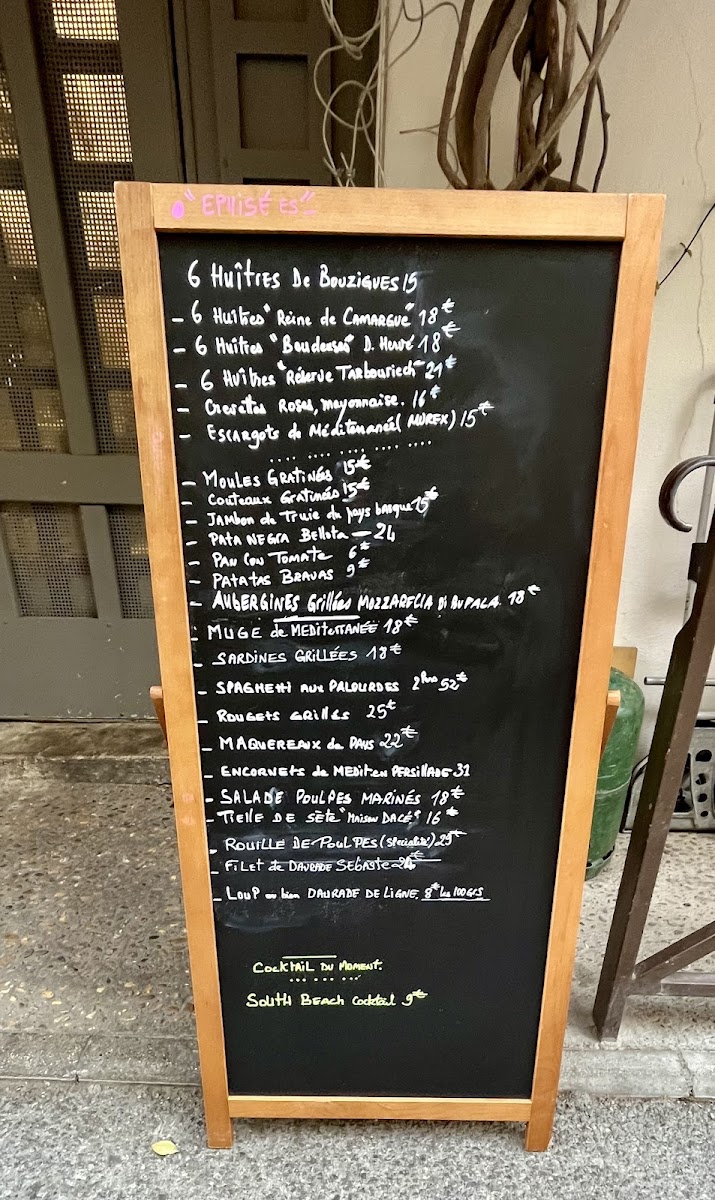 "EPHISÉ ES"
6 HUÎTRES DE BOUZIGUES 15
- 6 HUÎTRES "Reine de CAMARGUE" 18€
- 6 HUÎTRES "Boudeuses" D. Hervé 18€
- 6 HUÎTRES "Réserve TARBOURIECH" 21€
- Crevettes Roses, mayonnaise. 16€
- ESCARGOTS de Méditerranée (MUREX) 15€
- MOULES GRATINÉS 15€
- COUTEAUX GRATINÉS 15€
- JAMBON de TRUIE du pays basque 15€
- PATA NEGRA Bellota - 24
- PAN CON TOMATE 6€
- PATATAS BRAVAS 9€
- AUBERGINES Grillées MOZZARELLA Di BUFALA. 18€
- MUGE de MEDITERRANÉE 18€
- SARDINES GRILLÉES 18€
- SPAGHETTI AUX PALOURDES 2 Prs 52€
- ROUGETS GRILLÉS 25€
- MAQUEREAUX de PAYS 22€
- ENCORNETS de MEDITEN PERSILLADE 32
- SALADE POULPES MARINÉS 18€
- TIELLE DE SÈTE "MAISON DACÉ" 16€
- ROUILLE DE POULPES (spécialité) 25€
- FILET de DAURADE SEBASTE 24€
- LOUP ou bien DAURADE DE LIGNE. 8€ les 100GRS
COCKTAIL DU MOMENT.
SOUTH BEACH Cocktail 9€